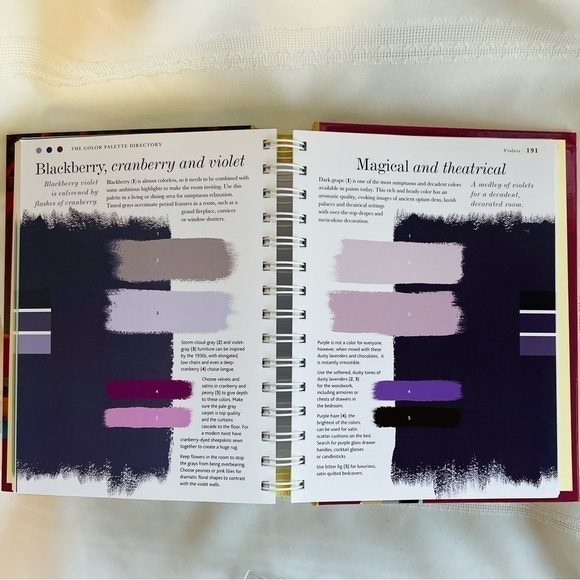 THE COLOR PALETTE DIRECTORY
Blackberry, cranberry and violet
Blackberry violet
is enlivened by
flashes of cranberry.
Blackberry (1) is almost colorless, so it needs to be combined with
some ambitious highlights to make the room inviting. Use this
palette in a living or dining area for sumptuous relaxation.
Tinted grays accentuate period features in a room, such as a
grand fireplace, cornices
or window shutters.
2
3
Storm-cloud-gray (2) and violet-
gray (3) furniture can be inspired
by the 1930s, with elongated,
low chairs and even a deep-
cranberry (4) chaise longue.
4
5
Choose velvets and
satins in cranberry and
peony (5) to give depth
to these colors. Make
sure the pale gray
carpet is top quality
and the curtains
cascade to the floor. For
a modern twist have
cranberry-dyed sheepskins sewn
together to create a huge rug.
Keep flowers in the room to stop
the grays from being overbearing.
Choose peonies or pink lilies for
dramatic floral shapes to contrast
with the violet walls.
Violets 191
Magical and theatrical
Dark grape (1) is one of the most sumptuous and decadent colors
available in paints today. This rich and heady color has an
aromatic quality, evoking images of ancient opium dens, lavish
palaces and theatrical settings
with over-the-top drapes and
meticulous decoration.
A medley of violets
for a decadent,
decorated room.
1
2
3
Purple is not a color for everyone,
however, when mixed with these
dusty lavenders and chocolates, it
is instantly irresistible.
Use the softened, dusky tones of
dusty lavenders (2, 3)
for the woodwork,
including armoires or
chests of drawers in
the bedroom.
4
5
Purple haze (4), the
brightest of the colors,
can be used for satin
scatter cushions on the bed
Search for purple glass drawer
handles, cocktail glasses
or candlesticks.
Use bitter fig (5) for luxurious,
satin quilted bedcovers.